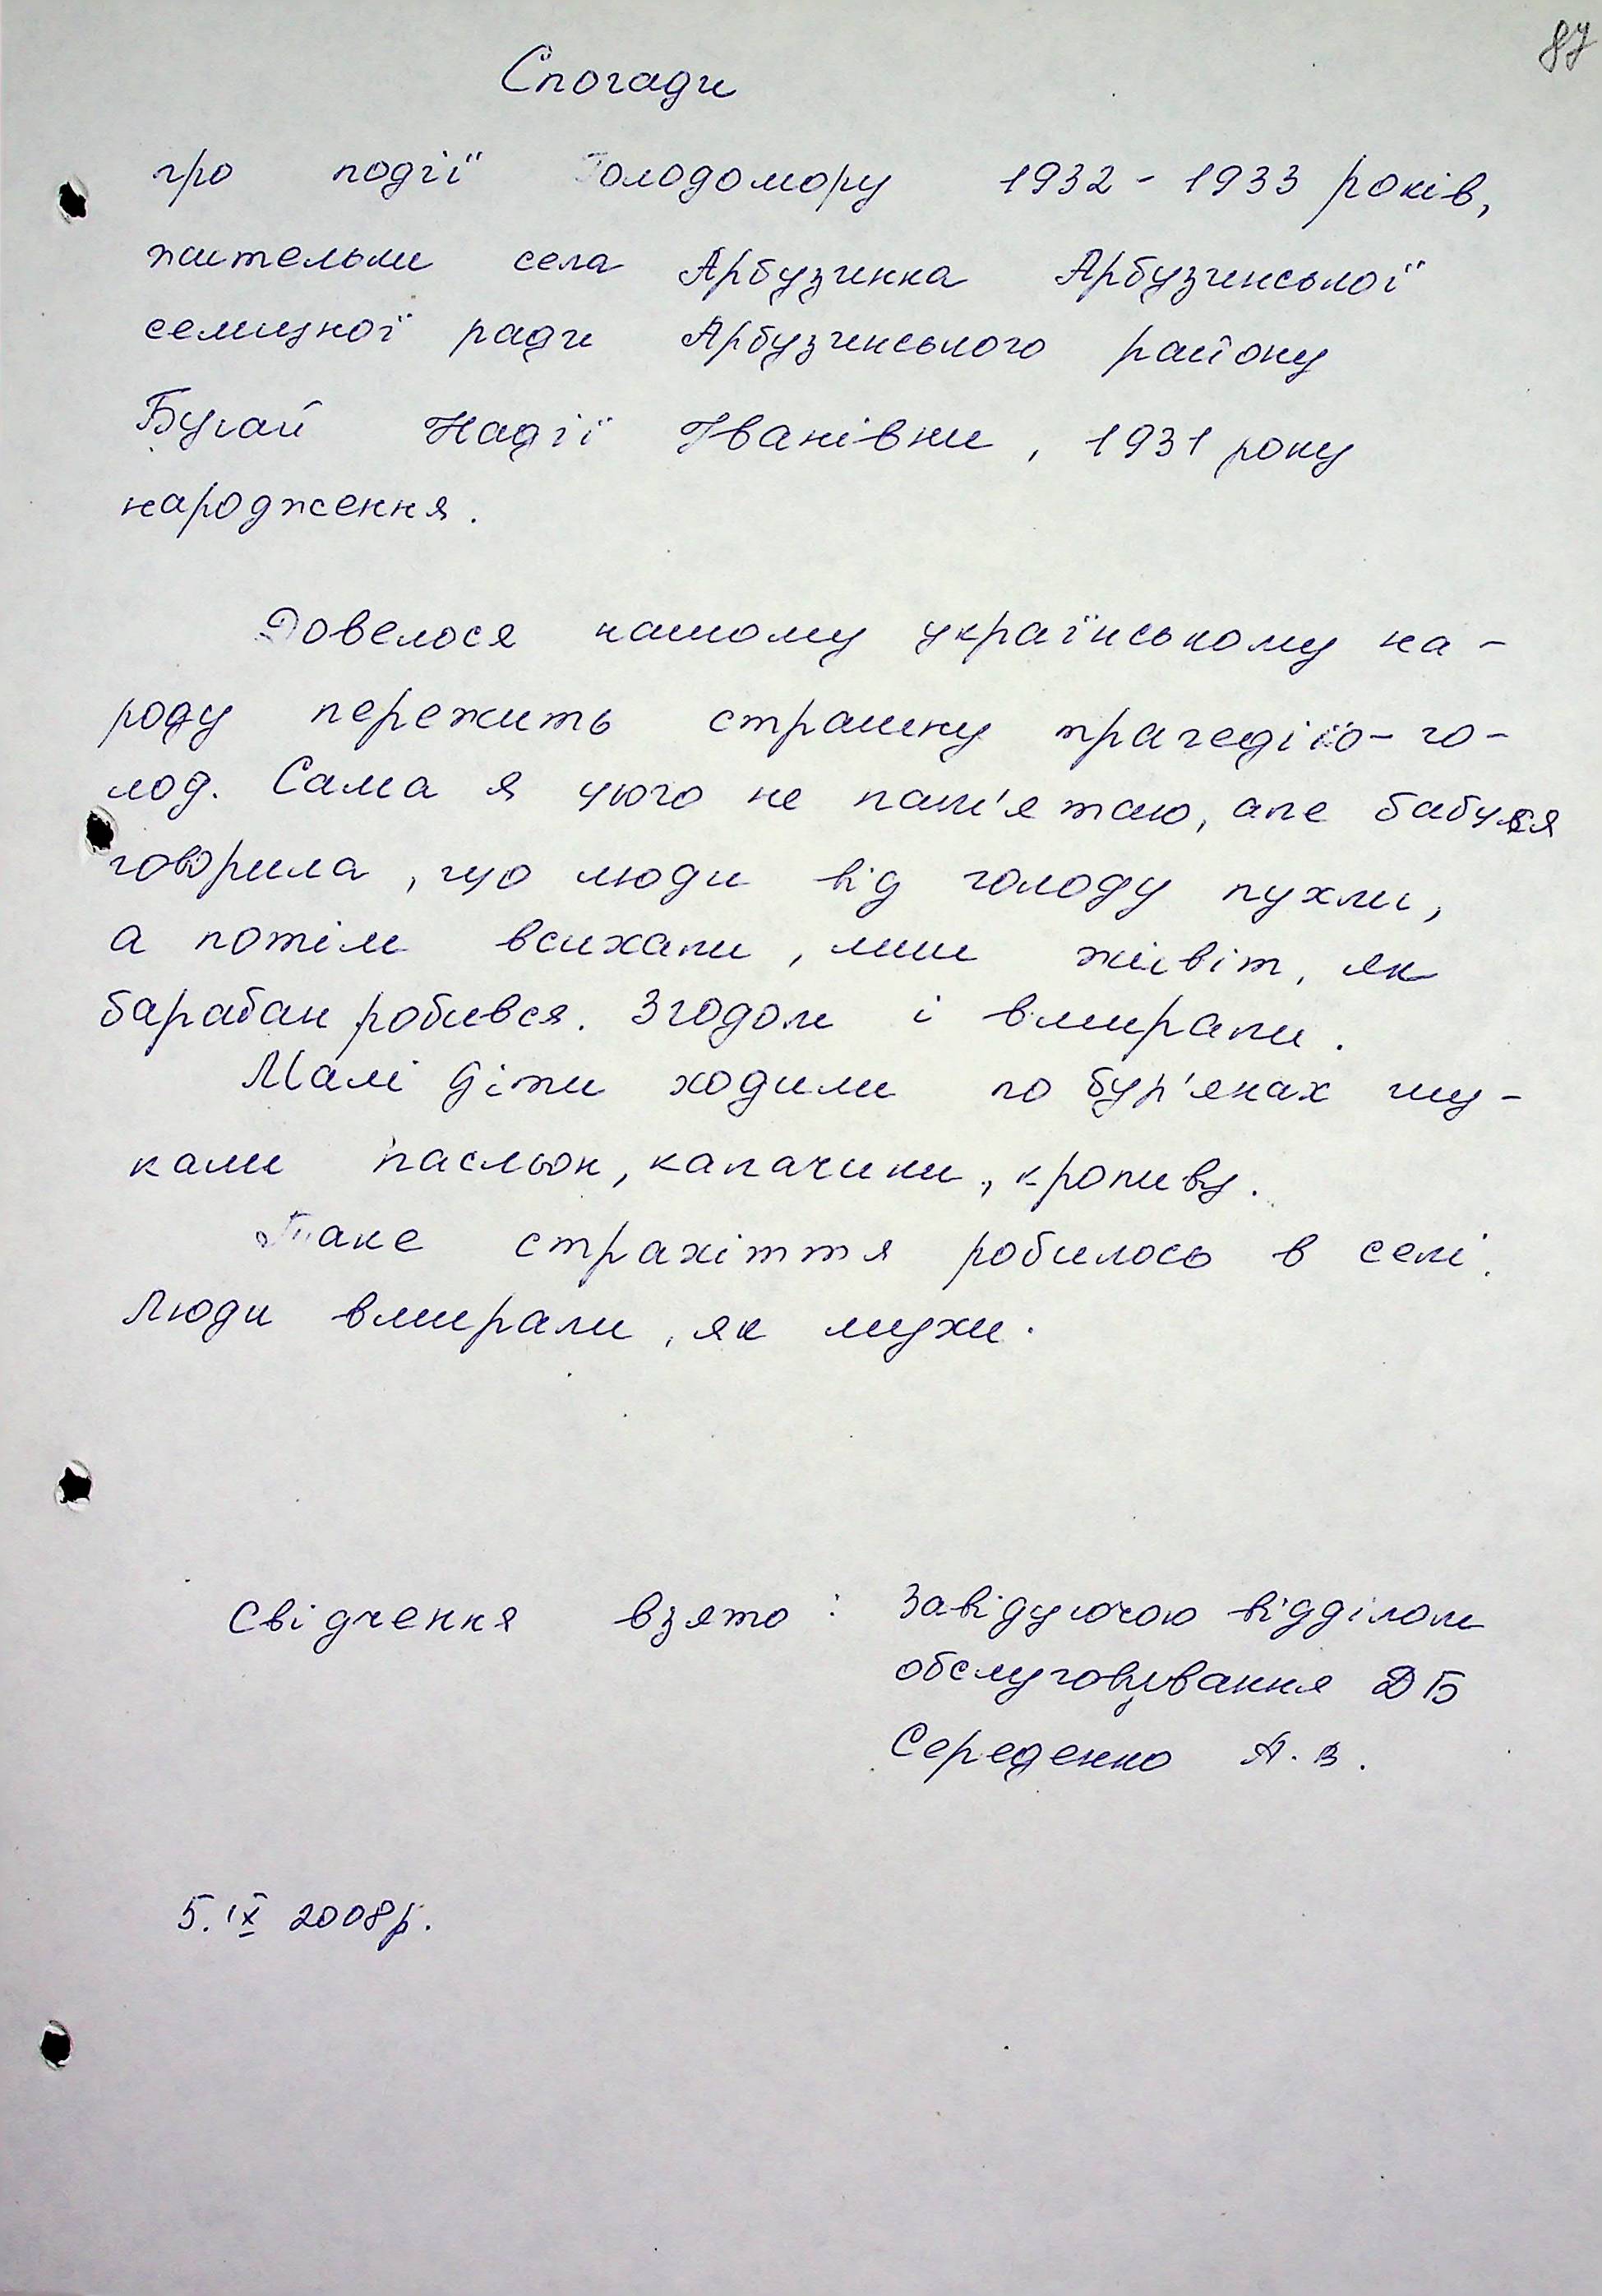 87
Спогади
про події Голодомору 1932 - 1933 років,
жительки села Арбузинка Арбузинської
селищної ради Арбузинського району
Бугай Надії Іванівни, 1931 року
народження.
Довелося нашому українському на-
роду пережить страшну трагедію - го-
лод. Сама я цього не пам'ятаю, але бабуся
говорила, що люди від голоду пухли,
а потім всихали, лиш живіт, як
барабан робився. Згодом і вмирали.
Малі діти ходили по бур'янах шу-
кали пасльон, калачики, кропиву.
Таке страхіття робилось в селі.
Люди вмирали, як мухи.
Свідчення взято: Завідуючою відділом
обслуговування ДБ
Середенко А. В.
5. IX 2008р.